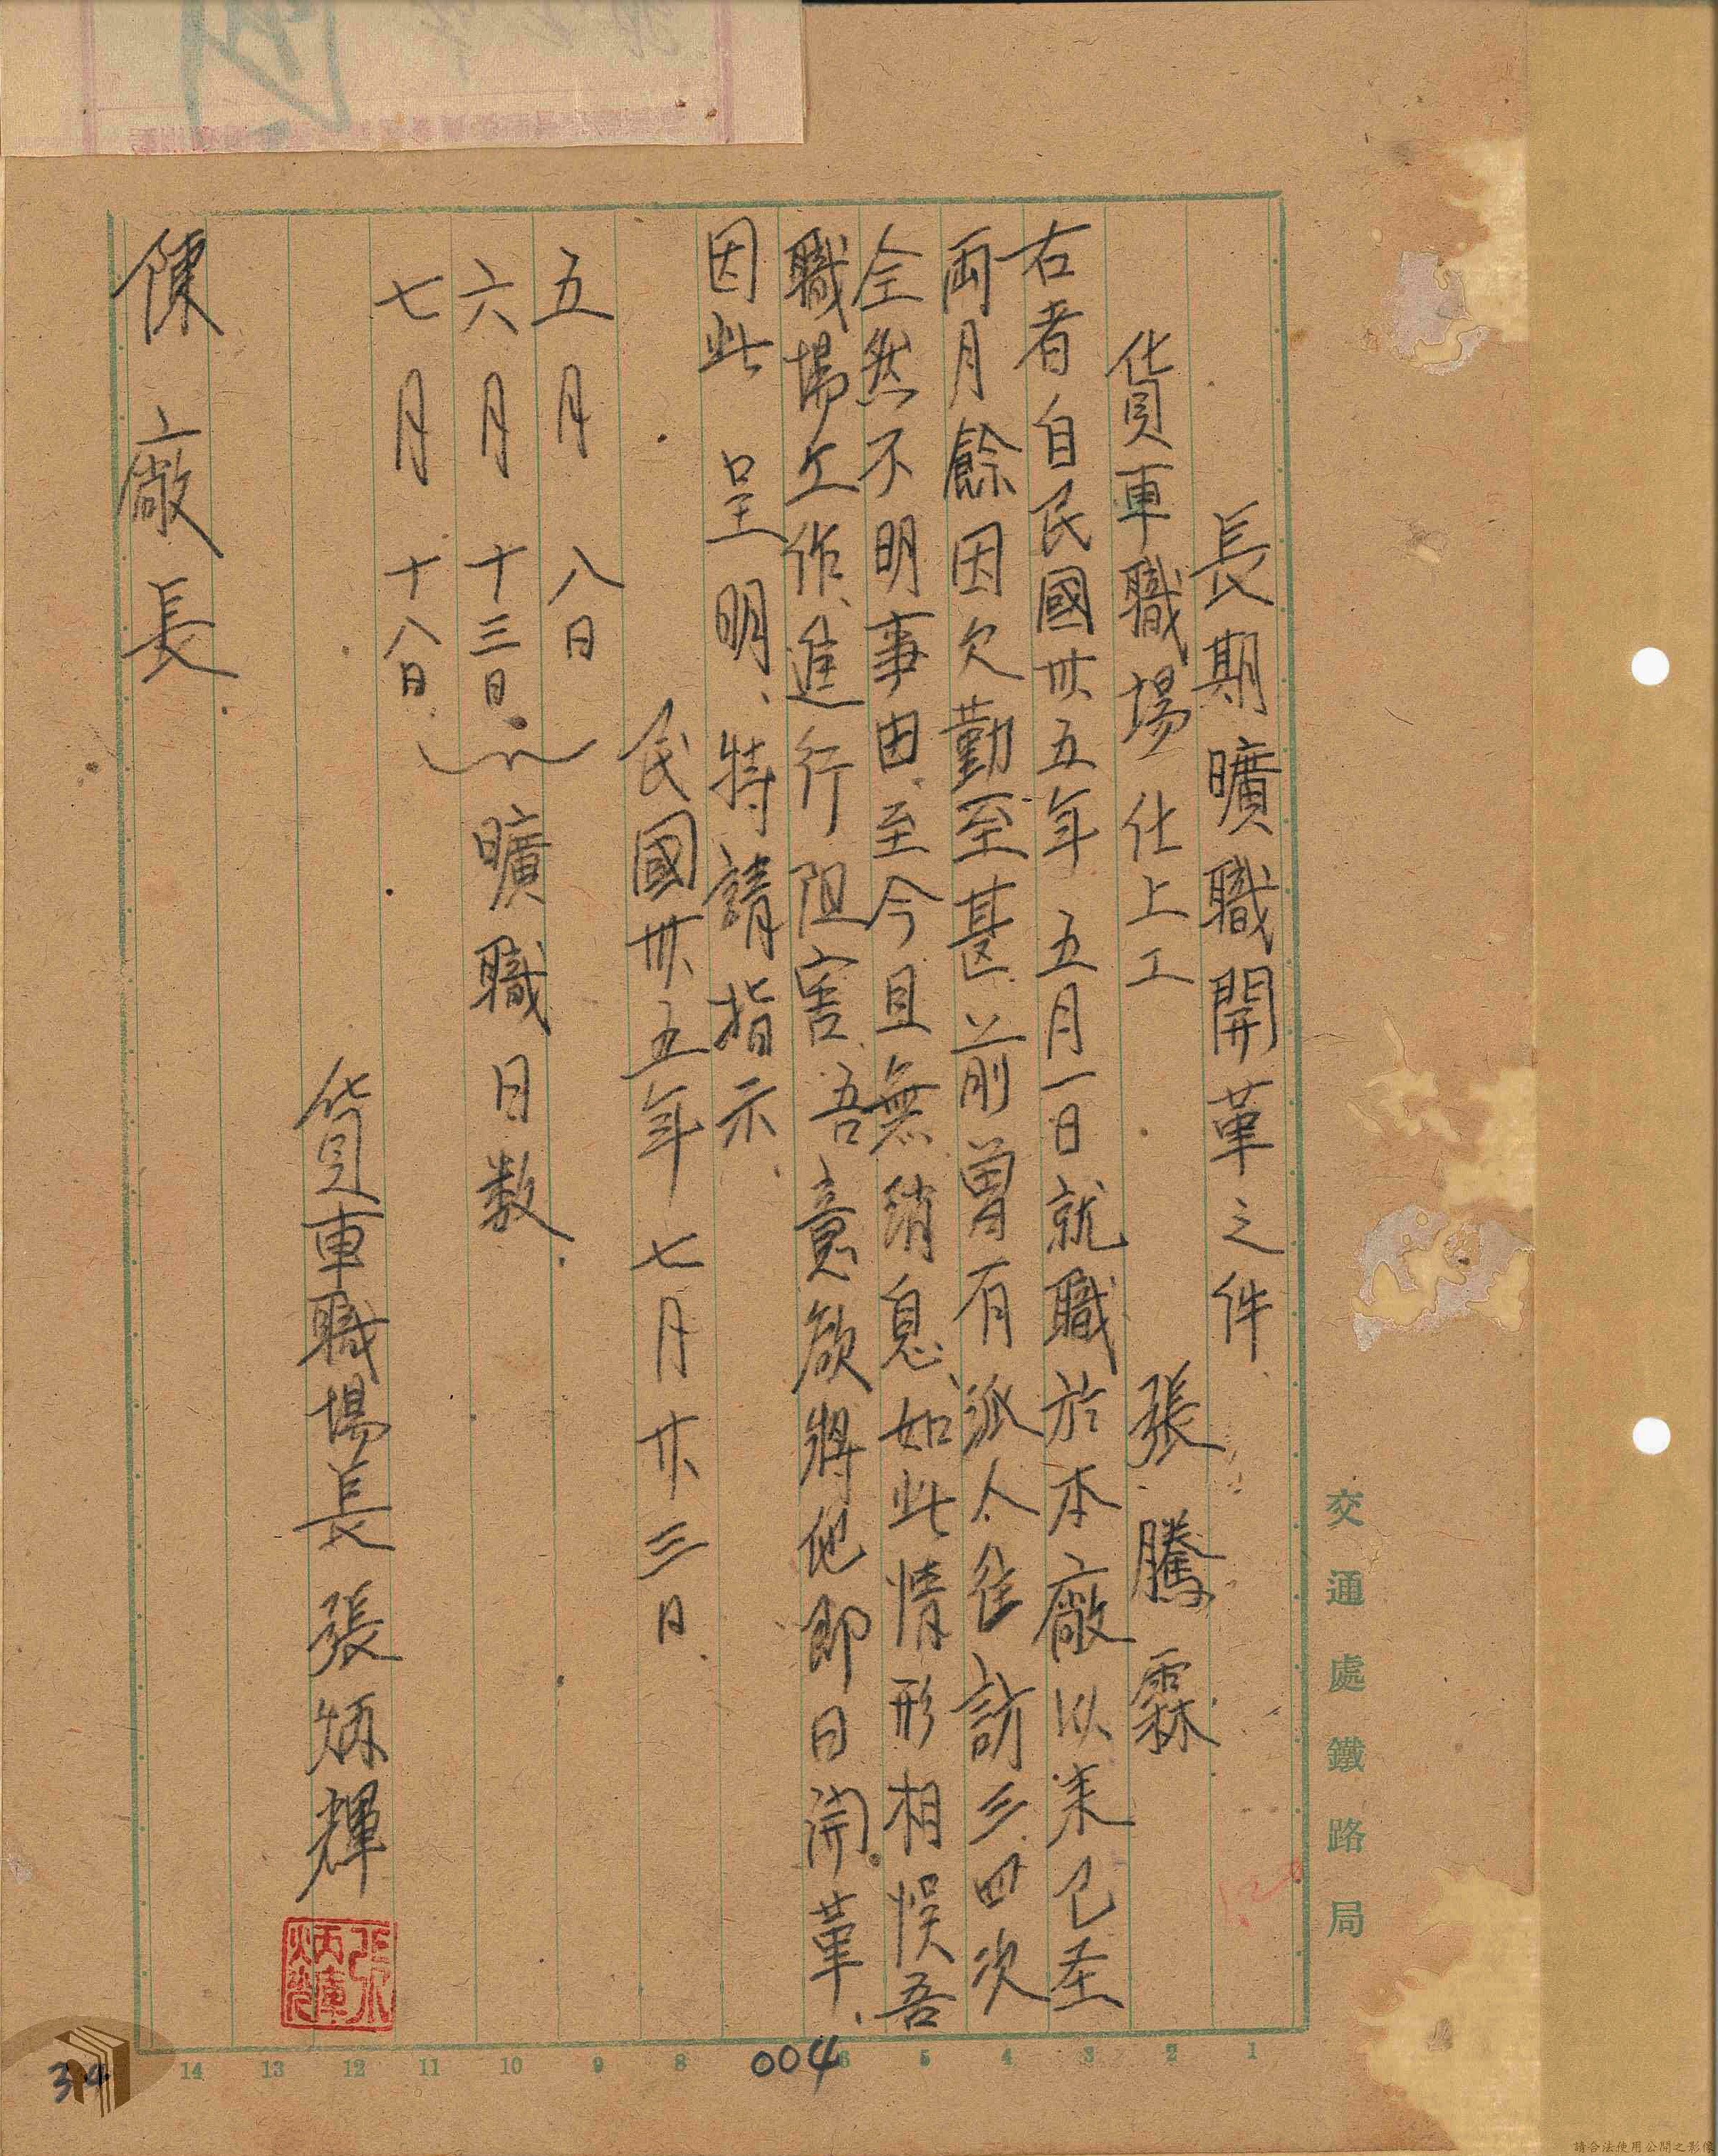 長期曠職開革之件
貨車職場 仕上工 張騰霖
右者自民國卅五年 五月一日就職於本廠以來已至
兩月餘因欠勤至甚 前曾有派人往訪三四次
全然不明事由、至今且無消息、如此情形相悞吾
職場工作、進行阻害、吾意欲將他即日開革、
因此 呈明、特請指示、
民國卅五年七月廿三日
五月 八日
六月 十三日
七月 十八日
曠職日数
貨車職場長 張炳輝
張炳輝
陳廠長
交通處鐵路局
1 2 3 4 5 6 8 9 10 11 12 13 14
004
34
請合法使用公開之影像